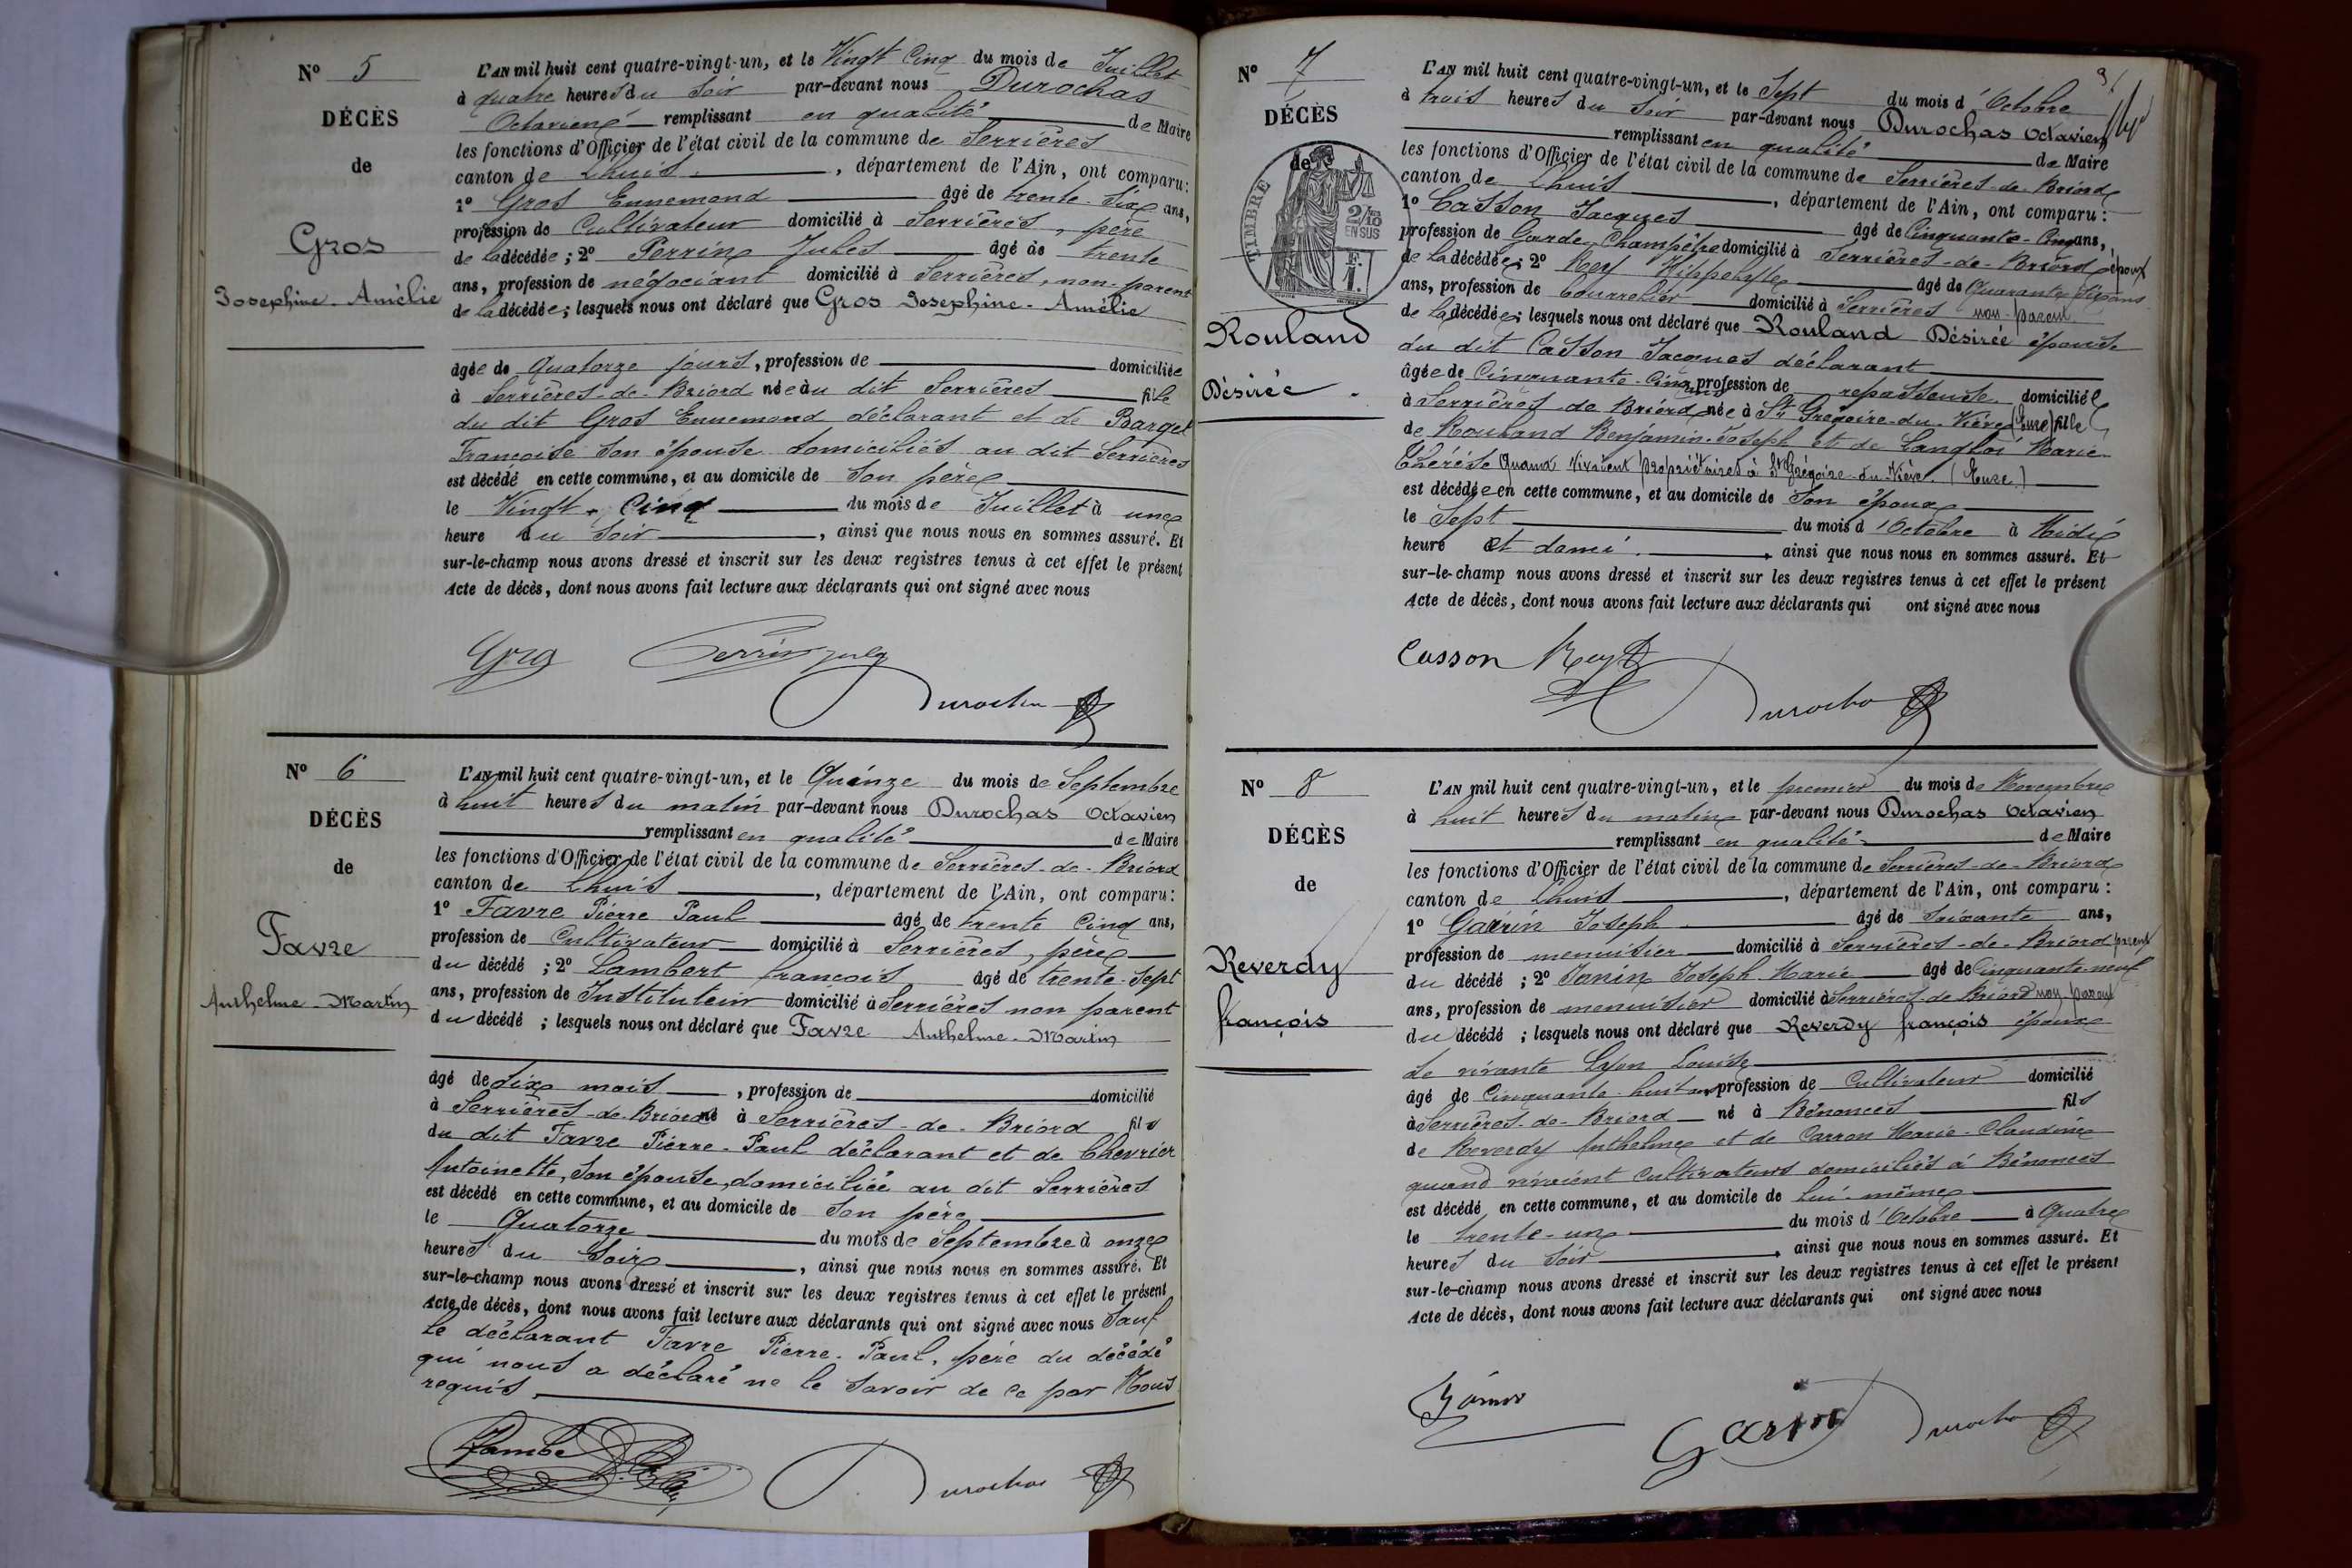 N° 5
DÉCÈS
de
Gros
Josephine-Amélie
L'AN mil huit cent quatre-vingt-un, et le Vingt Cinq du mois de Juillet
à quatre heures du soir par-devant nous Durochas
Octavien remplissant en qualité de Maire
les fonctions d'Officier de l'état civil de la commune de Serrières
canton de Lhuis, département de l'Ain, ont comparu:
1° Gros Ennemond âgé de trente-six ans,
profession de Cultivateur domicilié à Serrières, père
de la décédée; 2° Perrin Jules âgé de trente
ans, profession de négociant domicilié à Serrières, non-parent
de la décédée; lesquels nous ont déclaré que Gros Josephine-Amélie
âgée de Quatorze jours, profession de domiciliée
à Serrières-de-Briord née au dit Serrières fille
du dit Gros Ennemond déclarant et de Barget
Françoise son épouse domiciliés au dit Serrières
est décédé en cette commune, et au domicile de son père
le Vingt-Cinq du mois de Juillet à une
heure du soir, ainsi que nous nous en sommes assuré. Et
sur-le-champ nous avons dressé et inscrit sur les deux registres tenus à cet effet le présent
Acte de décès, dont nous avons fait lecture aux déclarants qui ont signé avec nous
Gros Perrin Jules
Durochas
N° 6
DÉCÈS
de
Favre
Anthelme-Martin
L'AN mil huit cent quatre-vingt-un, et le Quinze du mois de Septembre
à huit heures du matin par-devant nous Durochas Octavien
remplissant en qualité de Maire
les fonctions d'Officier de l'état civil de la commune de Serrières-de-Briord
canton de Lhuis, département de l'Ain, ont comparu:
1° Favre Pierre Paul âgé de trente Cinq ans,
profession de Cultivateur domicilié à Serrières, père
du décédé ; 2° Lambert françois âgé de trente-sept
ans, profession de Instituteur domicilié à Serrières non parent
du décédé ; lesquels nous ont déclaré que Favre Anthelme-Martin
âgé de dix mois, profession de domicilié
à Serrières-de-Briord né à Serrières-de-Briord fils
du dit Favre Pierre-Paul déclarant et de Chevrier
Antoinette, son épouse, domiciliée au dit Serrières
est décédé en cette commune, et au domicile de son père
le Quatorze du mois de Septembre à onze
heures du soir, ainsi que nous nous en sommes assuré. Et
sur-le-champ nous avons dressé et inscrit sur les deux registres tenus à cet effet le présent
Acte de décès, dont nous avons fait lecture aux déclarants qui ont signé avec nous Sauf
le déclarant Favre Pierre-Paul, père du décédé
qui nous a déclaré ne le savoir de ce par Nous
requis.
Lambert
Durochas
N° 7
DÉCÈS
de
TIMBRE
2/10
EN SUS
F.
Rouland
Désirée
L'AN mil huit cent quatre-vingt-un, et le Sept du mois d'Octobre
à trois heures du soir par-devant nous Durochas Octavien
remplissant en qualité de Maire
les fonctions d'Officier de l'état civil de la commune de Serrières-de-Briord
canton de Lhuis, département de l'Ain, ont comparu:
1° Casson Jacques âgé de Cinquante-Cinq ans,
profession de Garde-Champêtre domicilié à Serrières-de-Briord époux
de la décédée; 2° Rey Hippolyte âgé de Quarante six ans
ans, profession de bourrelier domicilié à Serrières non-parent
de la décédée; lesquels nous ont déclaré que Rouland Désirée épouse
du dit Casson Jacques déclarant
âgée de Cinquante-Cinq ans profession de repasseuse domiciliée
à Serrières-de-Briord née à St Grégoire-du-Vièvre (Eure) fille
de Rouland Benjamin-Joseph et de Langloi Marie-
Thérèse Quand Vivaient propriétaires à St Grégoire-du-Vièvre (Eure)
est décédée en cette commune, et au domicile de son époux
le Sept du mois d'Octobre à Midi
heure et demi, ainsi que nous nous en sommes assuré. Et
sur-le-champ nous avons dressé et inscrit sur les deux registres tenus à cet effet le présent
Acte de décès, dont nous avons fait lecture aux déclarants qui ont signé avec nous
Casson Rey
Durochas
N° 8
DÉCÈS
de
Reverdy
françois
L'AN mil huit cent quatre-vingt-un, et le premier du mois de Novembre
à huit heures du matin par-devant nous Durochas Octavien
remplissant en qualité de Maire
les fonctions d'Officier de l'état civil de la commune de Serrières-de-Briord
canton de Lhuis, département de l'Ain, ont comparu:
1° Garin Joseph âgé de soixante ans,
profession de menuisier domicilié à Serrières-de-Briord parent
du décédé ; 2° Janin Joseph Marie âgé de Cinquante-neuf
ans, profession de menuisier domicilié à Serrières-de-Briord non-parent
du décédé ; lesquels nous ont déclaré que Reverdy françois époux
de vivante Lyon Louise
âgé de Cinquante-huit ans profession de Cultivateur domicilié
à Serrières-de-Briord né à Bénonces fils
de Reverdy Anthelme et de Carron Marie-Claudine
quand vivaient Cultivateurs domiciliés à Bénonces
est décédé en cette commune, et au domicile de Lui-même
le trente-un du mois d'Octobre à Quatre
heures du soir, ainsi que nous nous en sommes assuré. Et
sur-le-champ nous avons dressé et inscrit sur les deux registres tenus à cet effet le présent
Acte de décès, dont nous avons fait lecture aux déclarants qui ont signé avec nous
Janin
Garin Durochas